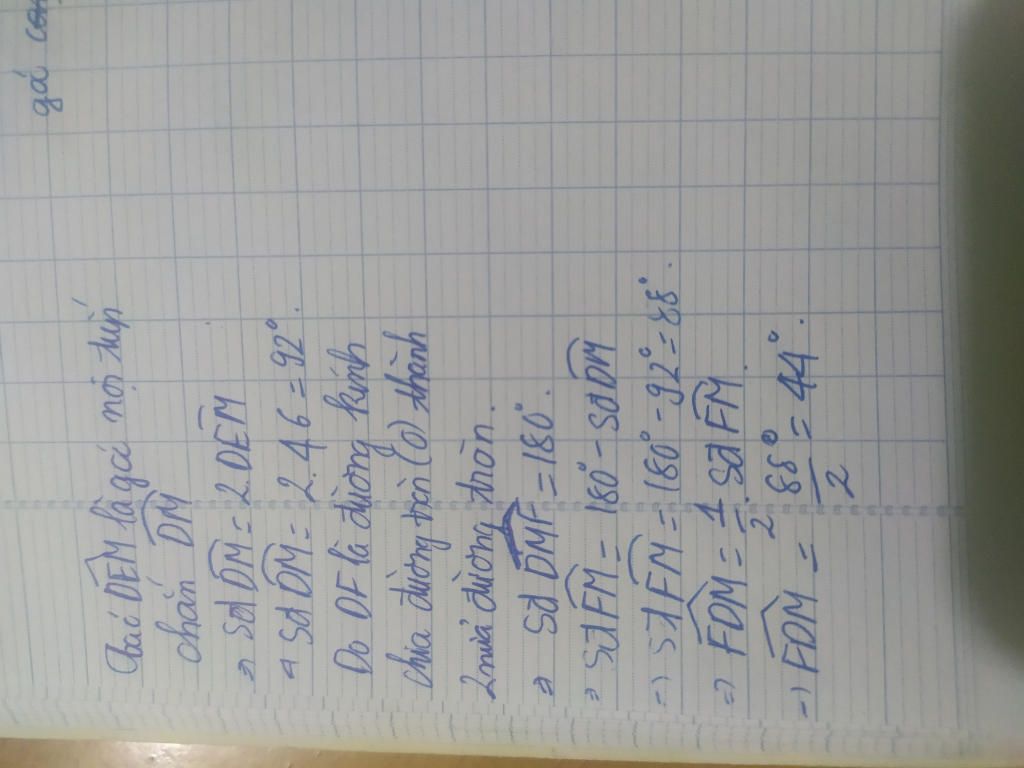 gá con
Ta có DEM là gá nội tiếp
chắn DM
⇒ Sđ DM = 2. DEM
⇒ Sđ DM = 2. 46 = 92°.
Do DF là đường kính
chia đường tròn (O) thành
2 nửa đường tròn.
⇒ Sđ DMF = 180°.
⇒ Sđ FM = 180° - Sđ DM
⇒ Sđ FM = 180° - 92° = 88°.
⇒ FDM = 1/2 Sđ FM.
⇒ FDM = 88°/2 = 44°.